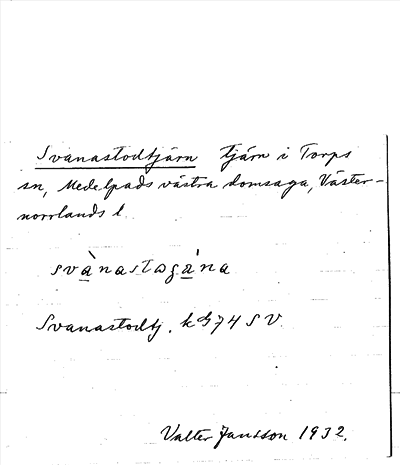 Svanastodtjärn tjärn i Torps
sn, Medelpads västra domsaga, Väster-
norrlands l.
Svanastodtj. kbl 74 SV.
Valter Jansson 1932.